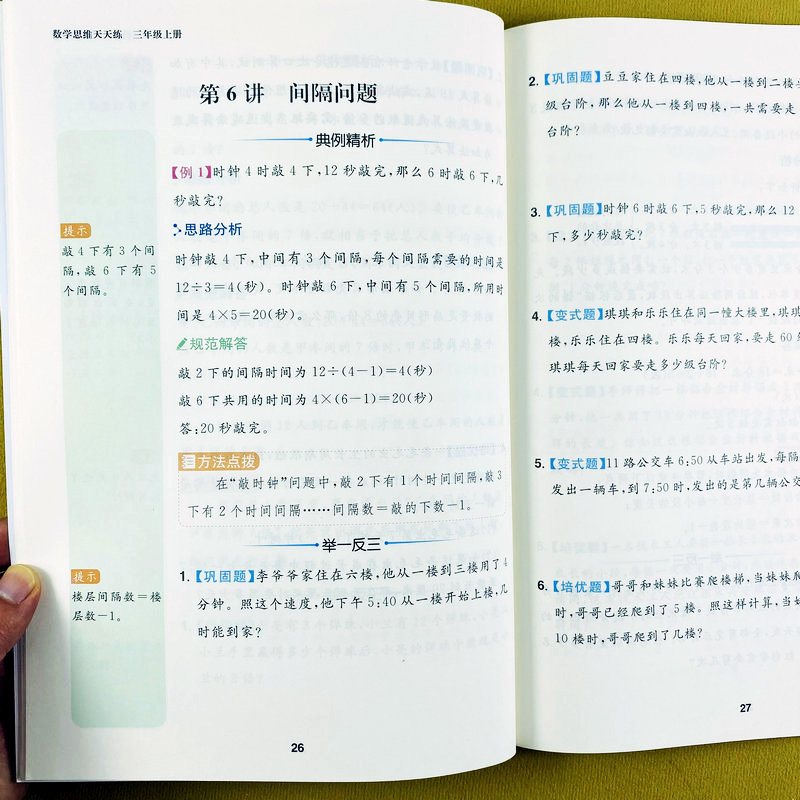 数学思维天天练 三年级上册
第6讲 间隔问题
典例精析
【例1】时钟4时敲4下,12秒敲完,那么6时敲6下,几
秒敲完?
思路分析
时钟敲4下,中间有3个间隔,每个间隔需要的时间是
12÷3=4(秒)。时钟敲6下,中间有5个间隔,所用时
间是4×5=20(秒)。
规范解答
敲2下的间隔时间为12÷(4-1)=4(秒)
敲6下共用的时间为4×(6-1)=20(秒)
答:20秒敲完。
方法点拨
在“敲时钟”问题中,敲2下有1个时间间隔,敲3
下有2个时间间隔……间隔数=敲的下数-1。
举一反三
1.【巩固题】李爷爷家住在六楼,他从一楼到三楼用了4
分钟。照这个速度,他下午5:40从一楼开始上楼,几
时能到家?
提示
敲4下有3个间
隔,敲6下有5
个间隔。
提示
楼层间隔数=楼
层数-1。
26
2.【巩固题】豆豆家住在四楼,他从一楼到二楼
级台阶,那么他从一楼到四楼,一共需要走
台阶?
3.【巩固题】时钟6时敲6下,5秒敲完,那么12
下,多少秒敲完?
4.【变式题】琪琪和乐乐住在同一幢大楼里,琪琪
楼,乐乐住在四楼。乐乐每天回家,要走60
琪琪每天回家要走多少级台阶?
5.【变式题】11路公交车6:50从车站出发,每隔
发出一辆车,到7:50时,发出的是第几辆公交
6.【培优题】哥哥和妹妹比赛爬楼梯,当妹妹爬
时,哥哥已经爬到了5楼。照这样计算,当妹
10楼时,哥哥爬到了几楼?
27